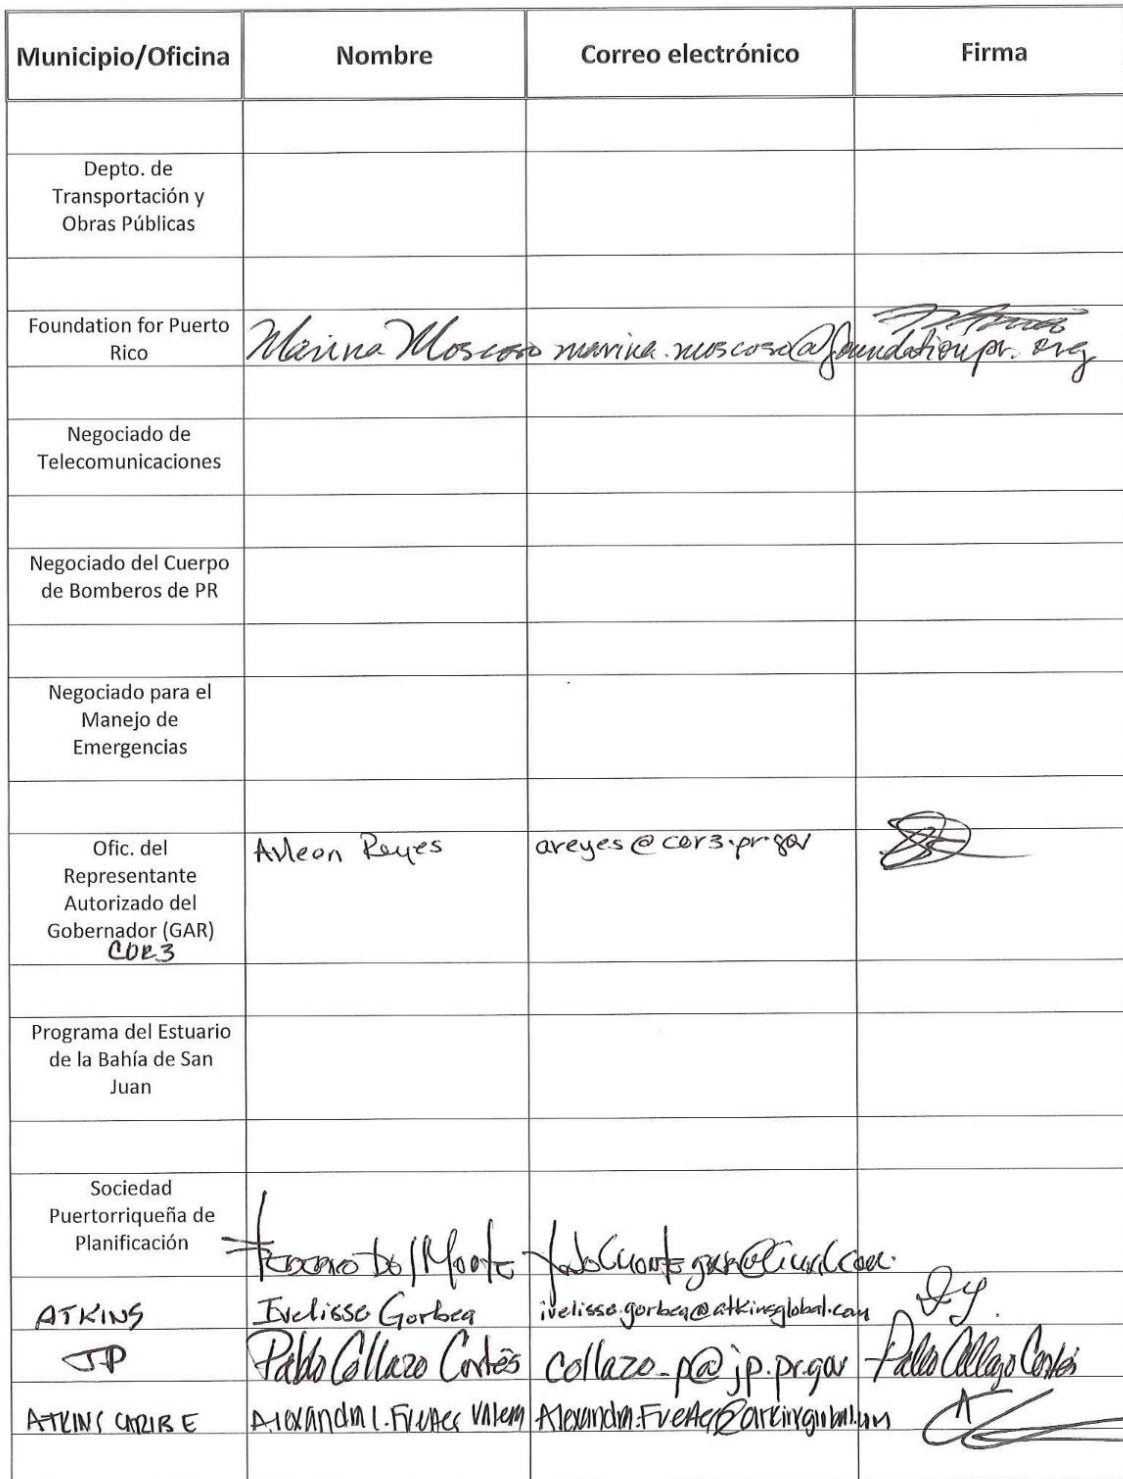 Municipio/Oficina Nombre Correo electrónico Firma
Depto. de
Transportación y
Obras Públicas
Foundation for Puerto
Rico
Marina Moscoso marina.moscoso@foundationpr.org
Negociado de
Telecomunicaciones
Negociado del Cuerpo
de Bomberos de PR
Negociado para el
Manejo de
Emergencias
Ofic. del
Representante
Autorizado del
Gobernador (GAR)
COR3
Arleen Reyes areyes@cor3.pr.gov
Programa del Estuario
de la Bahía de San
Juan
Sociedad
Puertorriqueña de
Planificación
Federico Del Monte
ATKINS Ivelisse Gorbea ivelisse.gorbea@atkinsglobal.com
JP Pablo Collazo Cortés collazo_p@jp.pr.gov Pablo Collazo Cortés
ATKINS CARIBE Alexandra